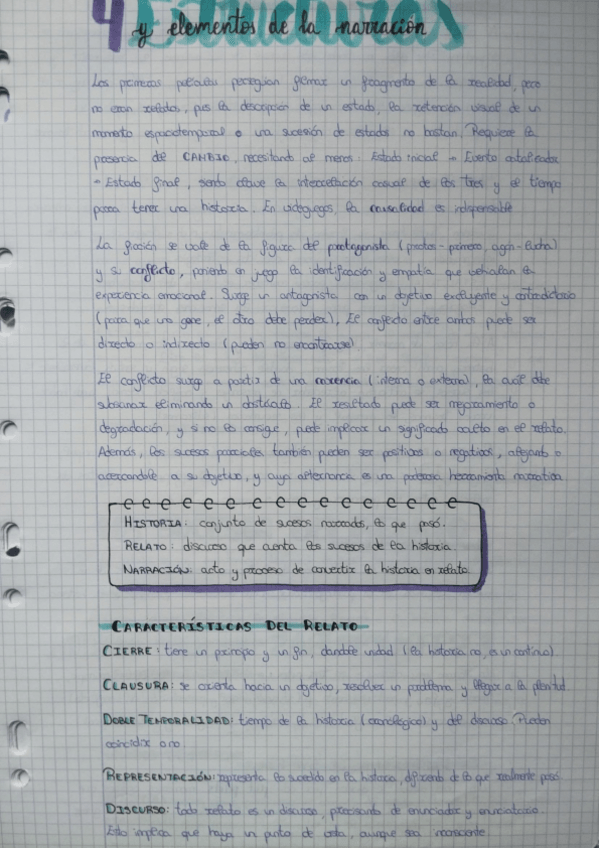 4 Estructuras
y elementos de la narración
Los primeros pictures perseguían filmar un fragmento de la realidad, pero
no eran relatos, pues la descripción de un estado, la retención visual de un
momento espaciotemporal o una sucesión de estados no bastan. Requiere la
presencia del CAMBIO, necesitando al menos: Estado inicial - Evento catalizador
- Estado final, siendo clave la interrelación causal de los tres y el tiempo
para tener una historia. En videojuegos, la causalidad es indispensable
La ficción se vale de la figura del protagonista (protos-primero, agón-lucha)
y su conflicto, poniendo en juego la identificación y empatía que vehiculan la
experiencia emocional. Surge un antagonista con un objetivo excluyente y contradictorio
(para que uno gane, el otro debe perder), El conflicto entre ambos puede ser
directo o indirecto (pueden no encontrarse)
El conflicto surge a partir de una carencia (interna o externa), la cual debe
subsanar eliminando un obstáculo. El resultado puede ser mejoramiento o
degradación, y si no lo consigue, puede implicar un significado oculto en el relato.
Además, los sucesos parciales también pueden ser positivos o negativos, alejando o
acercandole a su objetivo, y cuya alternancia es una poderosa herramienta narrativa
HISTORIA: conjunto de sucesos narrados, lo que pasó.
RELATO: discurso que cuenta los sucesos de la historia.
NARRACIÓN: acto y proceso de convertir la historia en relato.
CARACTERÍSTICAS DEL RELATO
CIERRE: tiene un principio y un fin, dandole unidad (la historia no, es un continuo)
CLAUSURA: se orienta hacia un objetivo, resolver un problema y llegar a la plenitud.
DOBLE TEMPORALIDAD: tiempo de la historia (cronológico) y del discurso. Pueden
coincidir o no.
REPRESENTACIÓN: representa lo sucedido en la historia, difiriendo de lo que realmente pasó
DISCURSO: todo relato es un discurso, precisando de enunciador y enunciatario.
Esto implica que haya un punto de vista, aunque sea inconsciente.